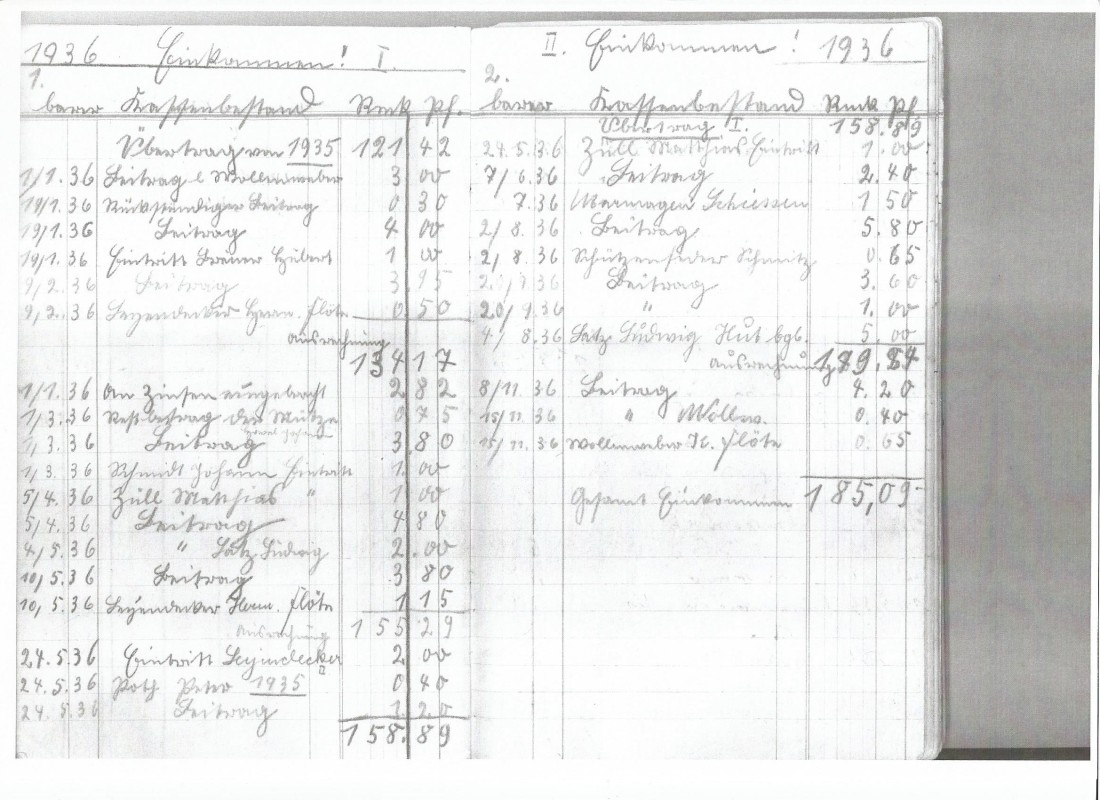 1936 Einkommen! I.
1.
barer Kassenbestand Rmk Pf.
Übertrag von 1935 121 42
1/1.36 Beitrag l Wollenweber 3 00
19/1.36 Rückständiger Beitrag 0 30
19/1.36 Beitrag 4 00
19/1.36 Eintritt Breuer Hubert 1 00
9/2.36 Beitrag 3 95
9/2.36 Leyendecker Herm. Flöte 0.50
ausrechnung
134 17
1/1.36 An Zinsen eingebracht 2 82
1/3.36 Restbetrag der Mütze 0 75
1/3.36 Beitrag 3.80
1/3.36 Schmidt Johann Eintritt 1.00
5/4.36 Züll Matthias " 1 00
5/4.36 Beitrag 4 80
4/5.36 " Latz Ludwig 2.00
10/5.36 Beitrag 3 80
10/5.36 Leyendecker Herm. Flöte 1 15
Ausrechnung 155 29
24.5.36 Eintritt Leyendecker 2 00
24.5.36 Poth Peter 1935 0 40
24.5.36 Beitrag 1 20
158.89
II. Einkommen! 1936
2.
barer Kassenbestand Rmk Pf.
Übertrag I. 158.89
24.5.36 Züll Matthias Eintritt 1.00
7/6.36 Beitrag 2.40
7.36 Schiessen 1 50
2/8.36 Beitrag 5.80
2/8.36 Schützenfeder Schmitz 0.65
20/9.36 Beitrag 3.60
20/9.36 " 1.00
4/8.36 Latz Ludwig Hut bgl. 5.00
ausrechnung 179.84
8/11.36 Beitrag 4.20
15/11.36 " Wollw. 0.40
15/11.36 Wollenweber Flöte 0.65
Gesamt Einkommen 185,09